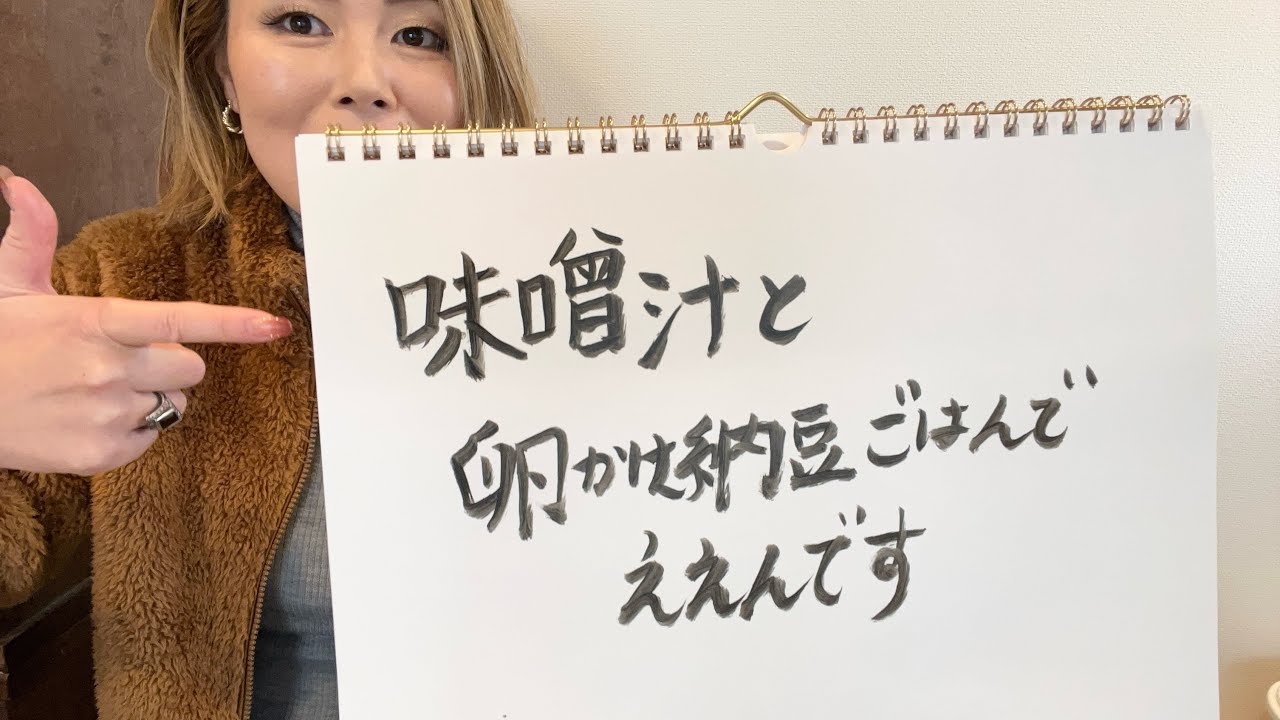 味噌汁と
卵かけ納豆ごはんで
ええんです